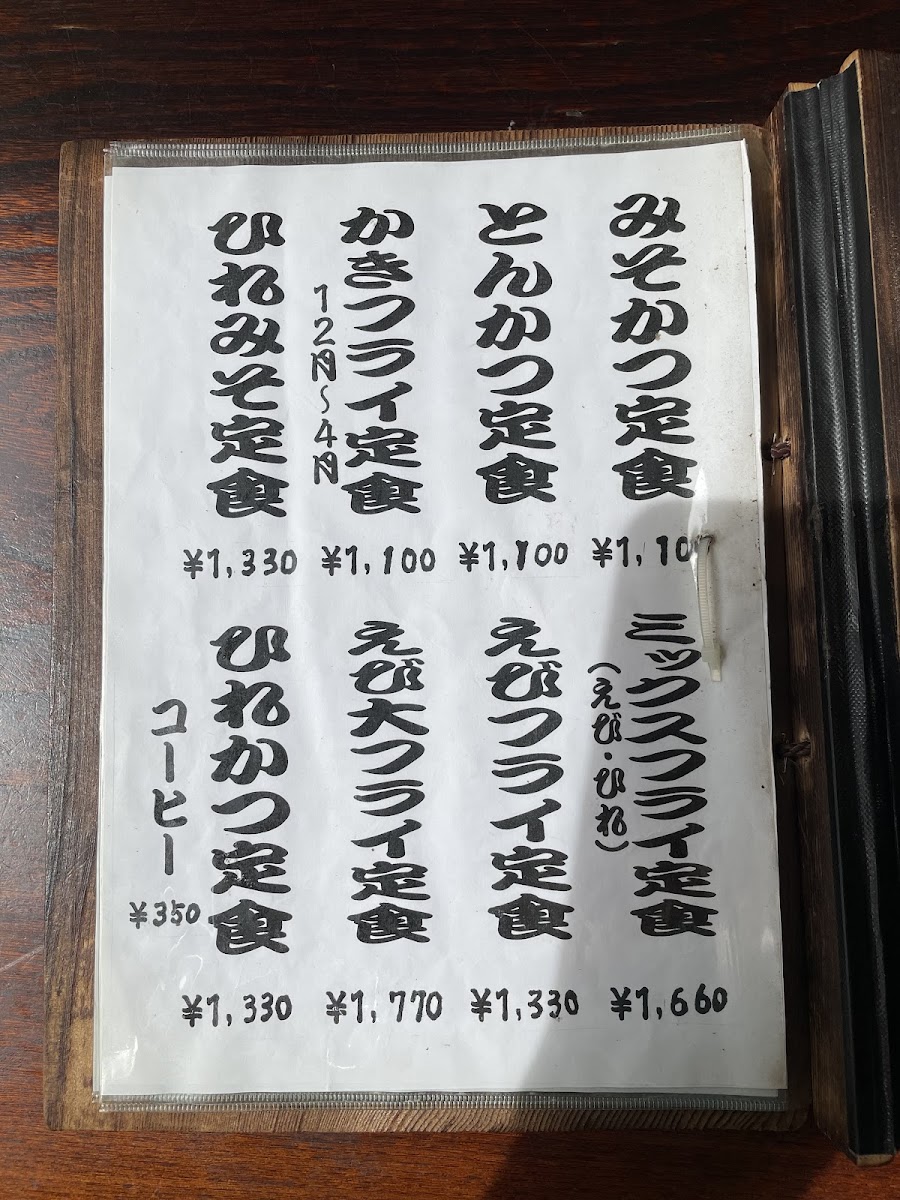 みそかつ定食
¥1,10
とんかつ定食
¥1,100
かきフライ定食
12月〜4月
¥1,100
ひれみそ定食
¥1,330
ミックスフライ定食
(えび・ひれ)
¥1,660
えびフライ定食
¥1,330
えび大フライ定食
¥1,770
ひれかつ定食
¥1,330
コーヒー
¥350